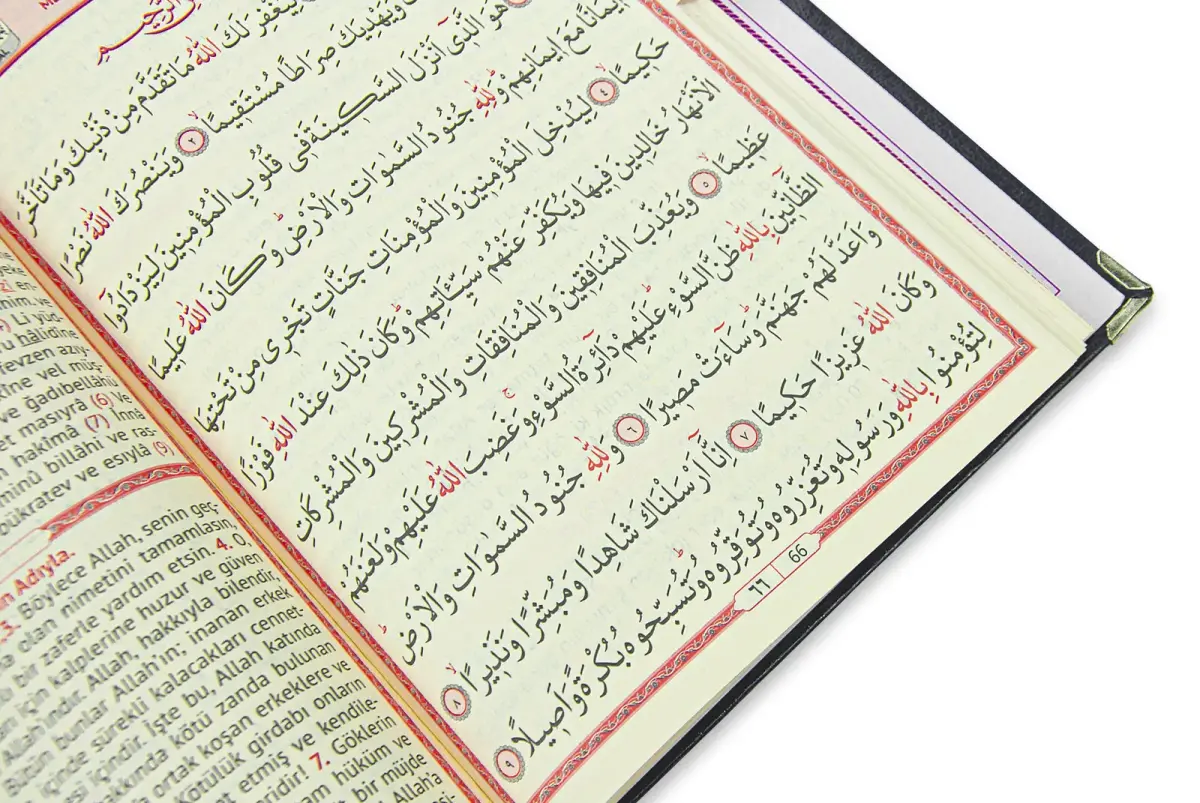 الرَّحِيمِ
لِيَغْفِرَ لَكَ اللّٰهُ مَا تَقَدَّمَ مِنْ ذَنْبِكَ وَمَا تَاَخَّرَ
وَيَهْدِيَكَ صِرَاطًا مُسْتَقِيمًا ٢ وَيَنْصُرَكَ اللّٰهُ نَصْرًا
هُوَ الَّذِى اَنْزَلَ السَّكِينَةَ فِى قُلُوبِ الْمُؤْمِنِينَ لِيَزْدَادُٓوا
اِيمَانًا مَعَ اِيمَانِهِمْ وَلِلّٰهِ جُنُودُ السَّمٰوَاتِ وَالْاَرْضِ وَكَانَ اللّٰهُ عَلِيمًا
حَكِيمًا ٤ لِيُدْخِلَ الْمُؤْمِنِينَ وَالْمُؤْمِنَاتِ جَنَّاتٍ تَجْرِى مِنْ تَحْتِهَا
الْاَنْهَارُ خَالِدِينَ فِيهَا وَيُكَفِّرَ عَنْهُمْ سَيِّـَٔاتِهِمْ وَكَانَ ذٰلِكَ عِنْدَ اللّٰهِ فَوْزًا
عَظِيمًا ٥ وَيُعَذِّبَ الْمُنَافِقِينَ وَالْمُنَافِقَاتِ وَالْمُشْرِكِينَ وَالْمُشْرِكَاتِ
الظَّٓانِّينَ بِاللّٰهِ ظَنَّ السَّوْءِ عَلَيْهِمْ دَٓائِرَةُ السَّوْءِ وَغَضِبَ اللّٰهُ عَلَيْهِمْ وَلَعَنَهُمْ
وَاَعَدَّ لَهُمْ جَهَنَّمَ وَسَٓاءَتْ مَصِيرًا ٦ وَلِلّٰهِ جُنُودُ السَّمٰوَاتِ وَالْاَرْضِ
وَكَانَ اللّٰهُ عَزِيزًا حَكِيمًا ٧ اِنَّٓا اَرْسَلْنَاكَ شَاهِدًا وَمُبَشِّرًا وَنَذِيرًا ٨
لِتُؤْمِنُوا بِاللّٰهِ وَرَسُولِهِ وَتُعَزِّرُوهُ وَتُوَقِّرُوهُ وَتُسَبِّحُوهُ بُكْرَةً وَاَصِيلًا ٩
٦٦ | 66
Li yüd
u hâlidîne
fevzen azıy-
kîne vel müş-
ve gadıbellânü
et masıyrâ (6) Ve
n hakîmâ (7) İnnâ
minû billâhi ve ras-
bükratev ve esıylâ (9)
ın Adıyla.
3. Böylece Allah, senin geç-
a olan nimetini tamamlasın,
lı bir zaferle yardım etsin. 4. O,
n için kalplerine huzur ve güven
Allah'ındır. Allah, hakkıyla bilendir,
Bütün bunlar Allah'ın; inanan erkek
içinde sürekli kalacakları cennet-
esi içindir. İşte bu, Allah katında
hakkında kötü zanda bulunan
a ortak koşan erkeklere ve
Kötülük girdabı onların
et etmiş ve kendile-
eridir! 7. Göklerin
am hüküm ve
t bir müjde
Allah'a